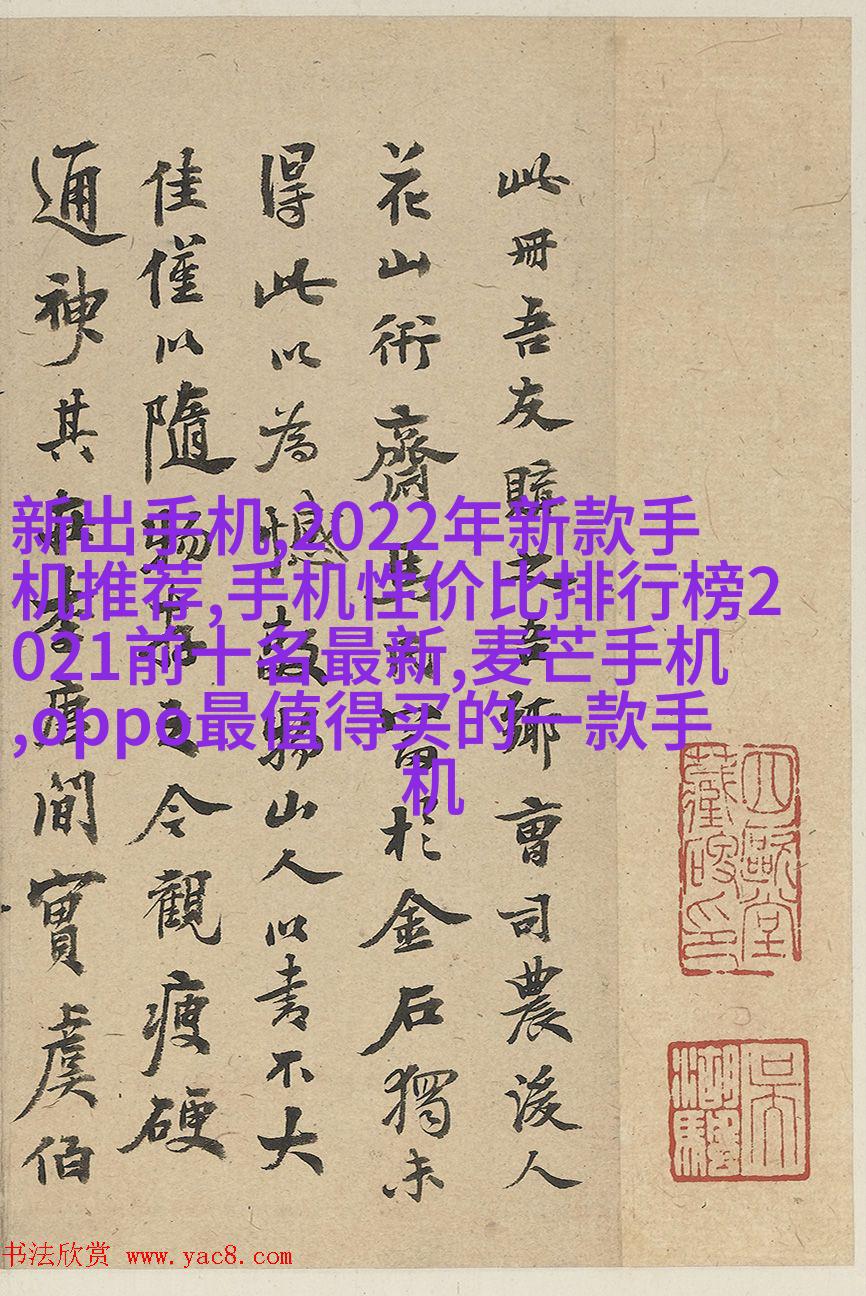 此冊吾友曹司農後人
花山術齋於金石獨未
得此以為憾故山人以書不大
佳僅以隨令觀瘦硬
通神其間實虞伯
新出手机,2022年新款手
机推荐,手机性价比排行榜2
021前十名最新,麦芒手机
,oppo最值得买的一款手
机
四歐堂
書法欣赏 www.yac8.com